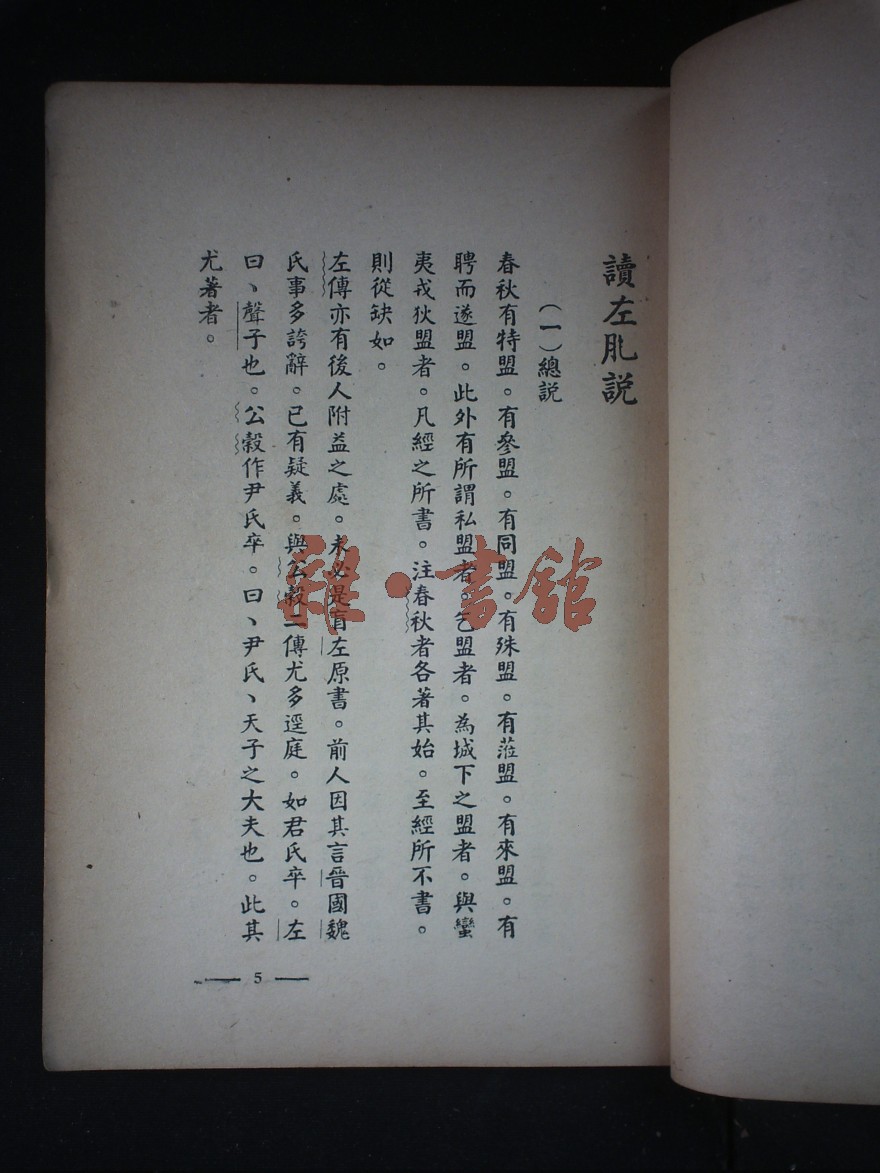 讀左肊説
(一)總説
春秋有特盟。有參盟。有同盟。有殊盟。有蒞盟。有來盟。有
聘而遂盟。此外有所謂私盟者。乞盟者。為城下之盟者。與蠻
夷戎狄盟者。凡經之所書。注春秋者各著其始。至經所不書。
則從缺如。
左傳亦有後人附益之處。未必是盲左原書。前人因其言晉國魏
氏事多誇辭。已有疑義。與公穀二傳尤多逕庭。如君氏卒。左
曰、聲子也。公穀作尹氏卒。曰、尹氏、天子之大夫也。此其
尤著者。
5
雜·書館